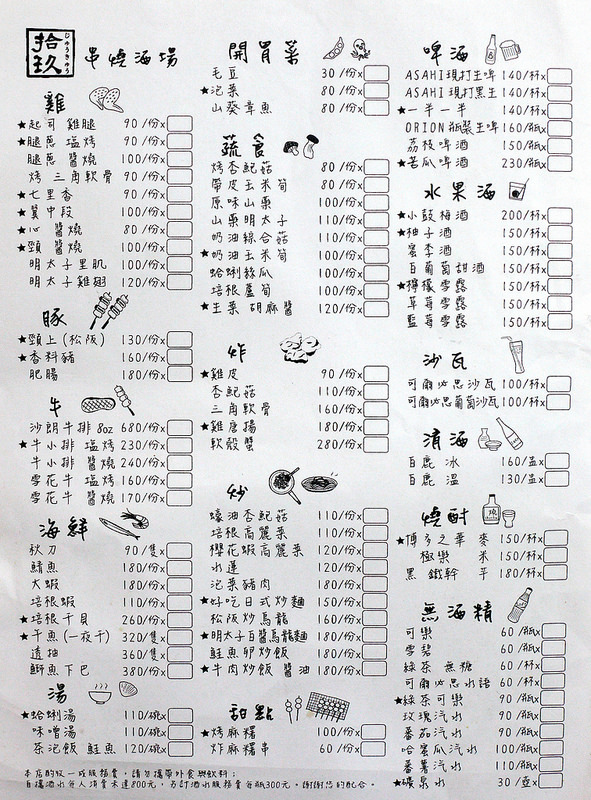 拾玖
じゅうきゅう
串燒酒場
雞
★起司 雞腿 90/份x
★腿蔥 塩烤 90/份x
腿蔥 醬燒 100/份x
烤 三角軟骨 90/份x
★七里香 90/份x
★翼中段 100/份x
★心 醬燒 80/份x
★頸 醬燒 100/份x
明太子里肌 100/份x
明太子雞翅 120/份x
豚
★頸上(松阪) 130/份x
★香料豬 160/份x
肥腸 180/份x
牛
沙朗牛排 8oz 680/份x
★牛小排 塩烤 230/份x
牛小排 醬燒 240/份x
雪花牛 塩燒 160/份x
雪花牛 醬燒 170/份x
海鮮
秋刀 90/隻x
鯖魚 180/份x
大蝦 180/份x
培根蝦 110/份x
★培根干貝 260/份x
★干魚(一夜干) 320/隻x
透抽 360/隻x
鰤魚下巴 380/份x
湯
★蛤蜊湯 110/碗x
味噌湯 110/碗x
茶泡飯 鮭魚 120/碗x
開胃菜
毛豆 30/份x
★泡菜 80/份x
山葵章魚 80/份x
蔬食
烤杏鮑菇 80/份x
帶皮玉米筍 80/份x
原味山藥 100/份x
山藥明太子 110/份x
奶油綜合菇 110/份x
★奶油玉米筍 100/份x
蛤蜊絲瓜 100/份x
培根蘆筍 100/份x
★生菜 胡麻醬 120/份x
炸
★雞皮 90/份x
杏鮑菇 110/份x
三角軟骨 160/份x
★雞唐揚 180/份x
軟殼蟹 280/份x
炒
蠔油杏鮑菇 110/份x
培根高麗菜 110/份x
櫻花蝦高麗菜 120/份x
水蓮 120/份x
泡菜豬肉 180/份x
★好吃日式炒麵 150/份x
松阪炒烏龍 160/份x
★明太子白醬烏龍麵 180/份x
鮭魚卵炒飯 180/份x
★牛肉炒飯 醬油 180/份x
甜點
★烤麻糬 100/份x
炸麻糬串 60/份x
啤酒
ASAHI現打生啤 140/杯x
ASAHI現打黑生 140/杯x
★一半一半 140/杯x
ORION瓶裝生啤 160/瓶x
荔枝啤酒 150/瓶x
★苦瓜啤酒 230/瓶x
水果酒
★小鼓梅酒 200/杯x
★柚子酒 150/杯x
蜜李酒 150/杯x
白葡萄甜酒 150/杯x
★檸檬雪露 150/杯x
草莓雪露 150/杯x
藍莓雪露 150/杯x
沙瓦
可爾必思沙瓦 100/杯x
可爾必思葡萄沙瓦 100/杯x
清酒
白鹿 冰 160/壺x
白鹿 溫 130/壺x
燒酎
★博多之華 麥 150/杯x
極樂 米 150/杯x
黑 鐵幹 芋 180/杯x
無酒精
可樂 60/瓶x
雪碧 60/瓶x
綠茶 無糖 60/杯x
可爾必思水語 60/杯x
★綠茶可樂 90/瓶x
玫瑰汽水 90/瓶x
番茄汽水 90/瓶x
哈蜜瓜汽水 100/瓶x
蕃薯汽水 110/瓶x
★礦泉水 30/壺x
本店酌收一成服務費，請勿攜帶外食與飲料；
自攜酒水每人消費未達800元，另訂酒水服務費每瓶300元。謝謝您的配合。